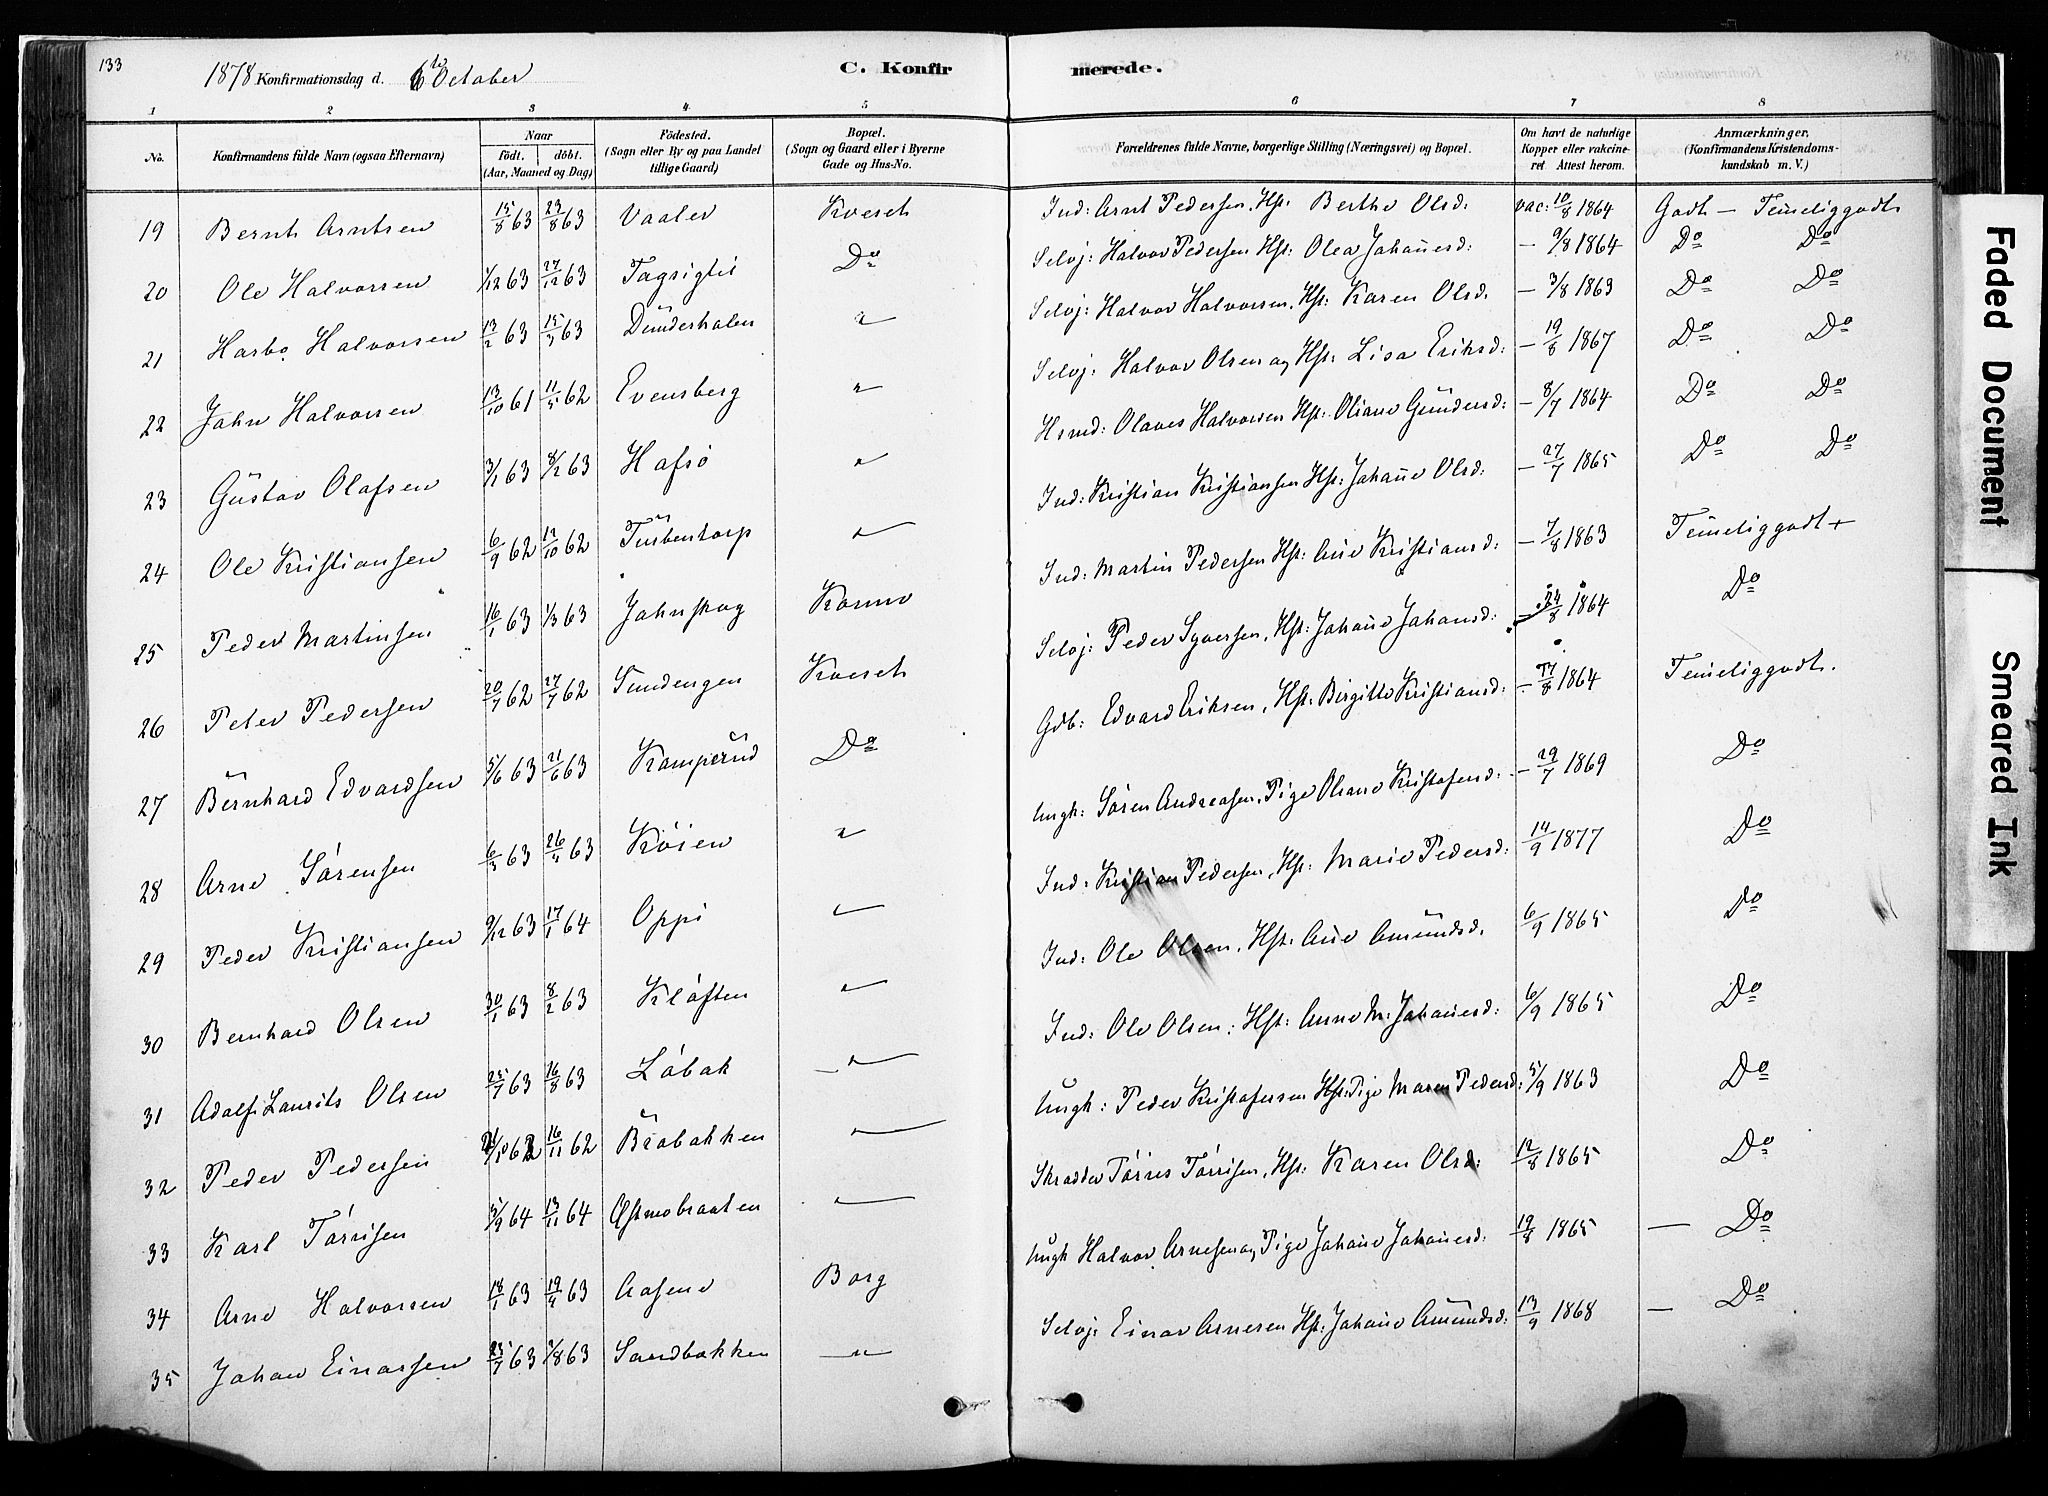 133
1878 Konfirmationsdag d. 6te October
C. Konfirmerede.
1 2 3 4 5 6 7 8
No. Konfirmandens fulde Navn (ogsaa Efternavn) Naar födt. döbt. (Aar, Maaned og Dag) Födested. (Sogn eller By og paa Landet tillige Gaard) Bopæl. (Sogn og Gaard eller i Byerne Gade og Hus-No. Forældrenes fulde Navne, borgerlige Stilling (Næringsvei) og Bopæl. Om havt de naturlige Kopper eller vakcineret Attest herom. Anmærkninger. (Konfirmandens Kristendomskundskab m. V.)
19 Bernt Arntsen 15/8 63 23/8 63 Vaaler Kveset Ind: Arnt Pedersen, Hst: Berthe Olsd: vac: 10/8 1864 Godt – Temeliggodt
20 Ole Halvorsen 1/12 63 27/12 63 Tagsigtil Do Selvj: Halvor Pedersen Hst: Olea Johannesd: – 9/8 1864 Do Do
21 Harbo Halvorsen 13/2 63 15/3 63 Dunderhalen " Selvj: Halvor Halvorsen, Hst: Karen Olsd. – 3/8 1863 Do Do
22 John Halvorsen 13/10 61 11/5 62 Evensberg " Selvj: Halvor Olsen og Hst: Lisa Eriksd: – 19/8 1867 Do Do
23 Gustav Olafsen 3/1 63 8/2 63 Hafsø " Hsmd: Olaves Halvorsen Hst: Oliane Gundersd: – 8/7 1864 Do Do
24 Ole Kristiansen 6/9 62 12/10 62 Turbentorp " Ind: Kristian Kristiansen Hst: Johanne Olsd: – 27/7 1865 Do Do
25 Peder Martinsen 16/1 63 1/3 63 Johnskog Kormo Ind: Martin Pedersen Hst: Ane Kristiansd: – 7/8 1863 Temeliggodt +
26 Peter Pedersen 20/7 62 27/7 62 Sundengen Kveset Selvj: Peder Syversen, Hst: Johanne Johansd: – 24/8 1864 Do
27 Bernhard Edvardsen 5/6 63 21/6 63 Kamperud Do Gdb: Edvard Eriksen, Hst: Birgitte Kristiansd: – 17/8 1864 Temeliggodt.
28 Arne Sørensen 6/3 63 26/4 63 Køien " Ungk: Søren Andreasen, Pige Oliane Kristofersd: – 29/7 1869 Do
29 Peder Kristiansen 9/12 63 17/1 64 Oppi " Ind: Kristian Pedersen, Hst: Marie Pedersd: 14/9 1877 Do
30 Bernhard Olsen 30/1 63 8/2 63 Kløften " Ind: Ole Olsen, Hst: Ane Amundsd. 6/9 1865 Do
31 Adolf Laurits Olsen 25/7 63 16/8 63 Løbak " Ind: Ole Olsen, Hst: Anne M. Johannesd: 6/9 1865 Do
32 Peder Pedersen 21/10 62 16/11 62 Brobakken " Ungk: Peder Kristofersen Hst: Pige Maren Pedersd: 5/9 1863 Do
33 Karl Tørrisen 5/9 64 13/11 64 Østmobraaten " Skrædder Tørres Tørrisen, Hst: Karen Olsd: 12/8 1865 Do
34 Arne Halvorsen 18/1 63 19/4 63 Aasene Borg Ungk Halvor Arnesen og Pige Johanne Johannesd: 19/8 1865 – Do
35 Johan Einarsen 25/7 63 2/8 63 Sandbakken " Selvj: Einar Arnesen Hst: Johanne Amundsd: 13/9 1868 – Do
Faded Document
Smeared Ink